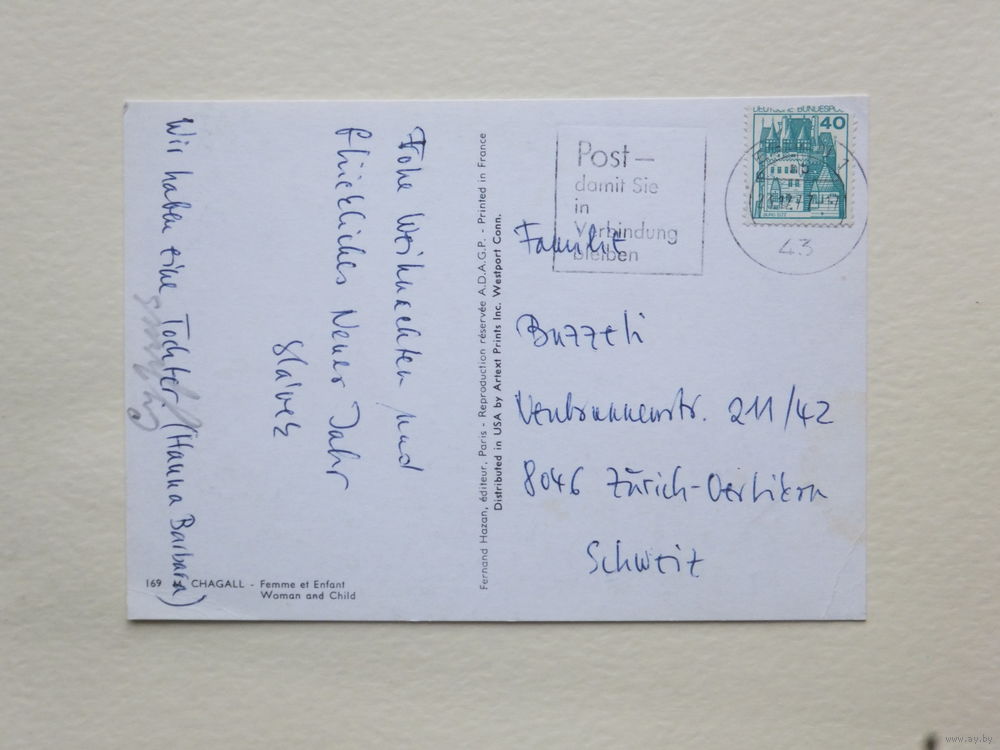 Frohe Weihnachten und
glückliches Neues Jahr
Wir haben eine Tochter (Hanna Barbara)
169 CHAGALL - Femme et Enfant
Woman and Child
Fernand Hazan, éditeur, Paris - Reproduction réservée A.D.A.G.P. - Printed in France
Distributed in USA by Artext Prints Inc. Westport Conn.
Post –
damit Sie
in
Verbindung
bleiben
DEUTSCHE BUNDESPO
40
BURG ELTZ
43
Familie
Buzzeti
211/42
8046 Zürich-Oerlikon
Schweiz
www.ay.by